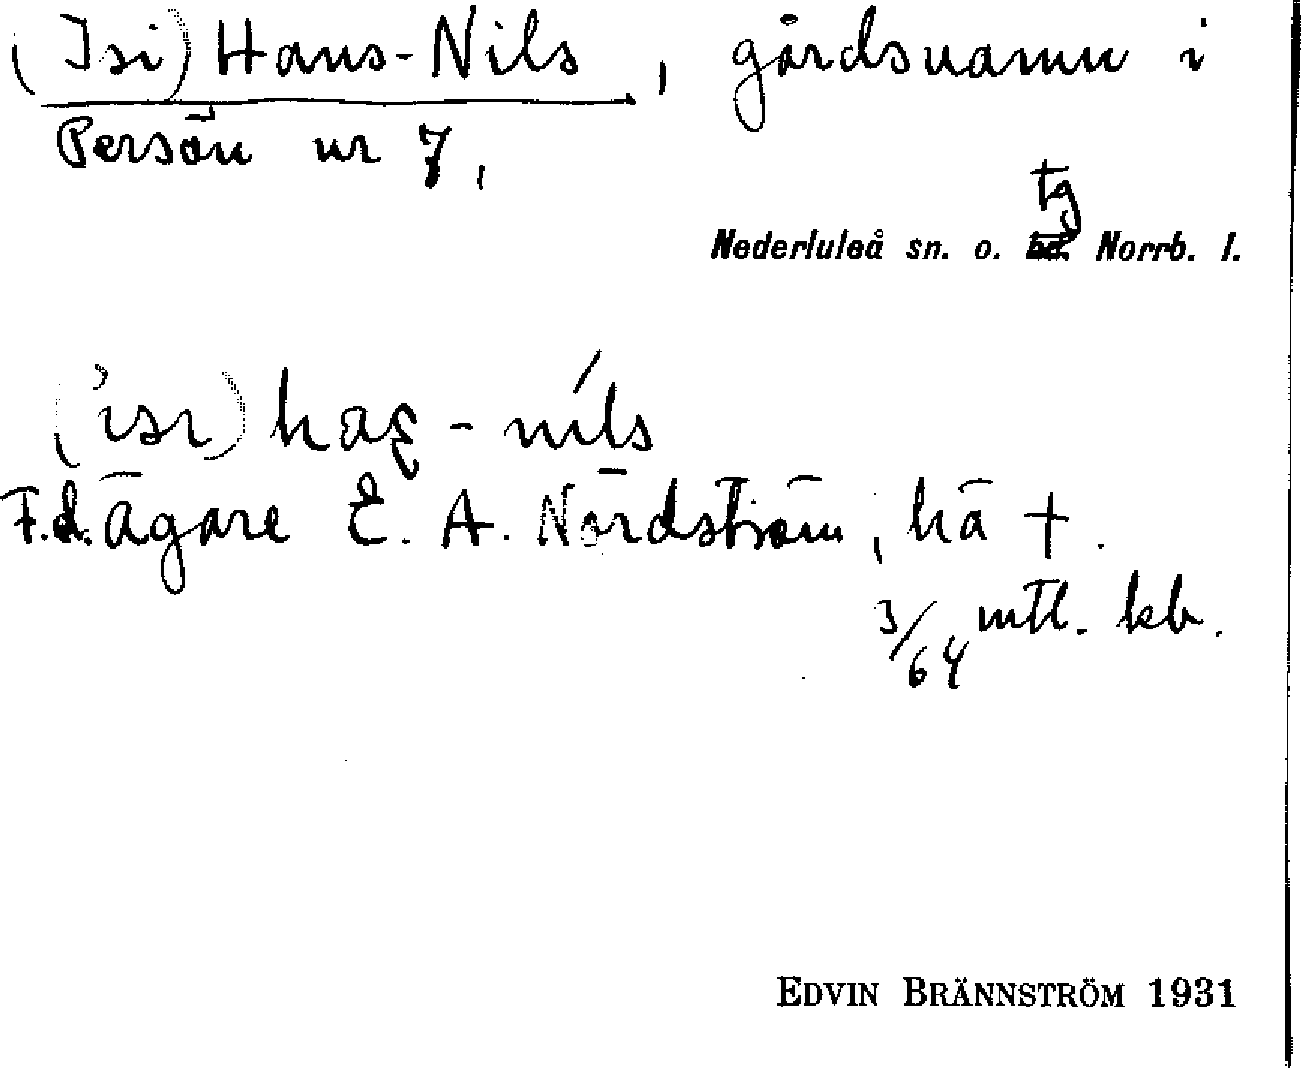 (Isi) Hans-Nils, gårdsnamn i
Persön nr 7,
tg
Nederluleå sn. o. Norrb. l.
nils
F.d. ägare E. A. Nordström, hä +.
3/64 mtl. kb.
EDVIN BRÄNNSTRÖM 1931